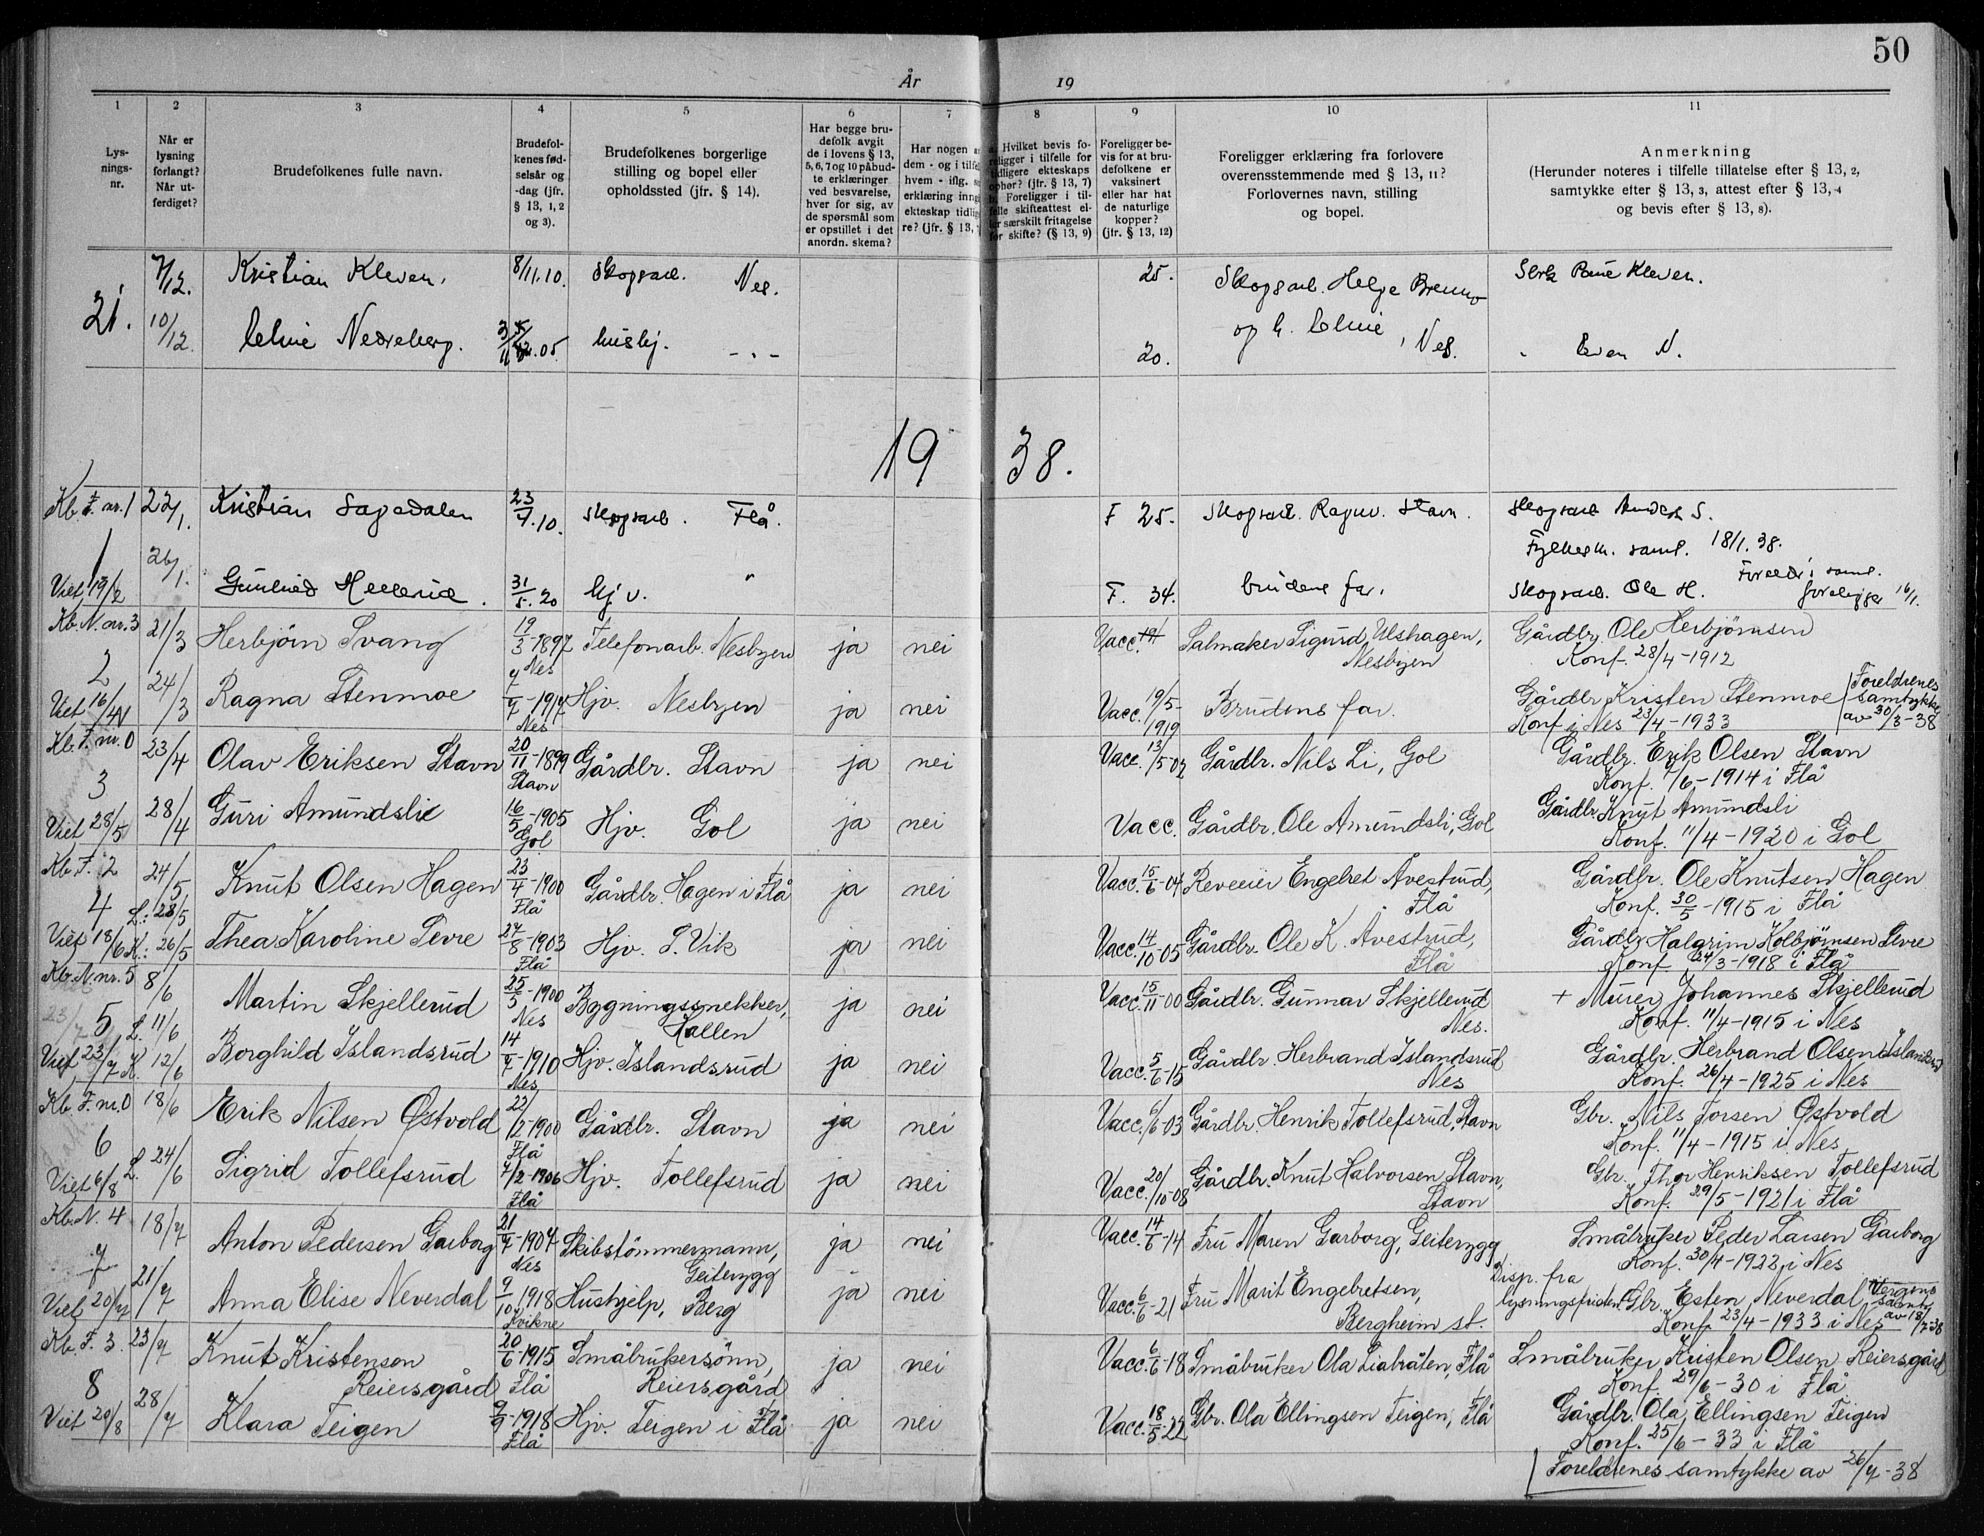 50
År 19
1 2 3 4 5 6 7 8 9 10 11
Lys-
nings-
nr.
Når er
lysning
forlangt?
Når ut-
ferdiget?
Brudefolkenes fulle navn.
Brudefol-
kenes fød-
selsår og
-dag (jfr.
§ 13, 1, 2
og 3).
Brudefolkenes borgerlige
stilling og bopel eller
opholdssted (jfr. § 14).
Har begge bru-
defolk avgit
de i lovens § 13,
5, 6, 7 og 10 påbud-
te erklæringer
ved besvarelse,
hver for sig, av
de spørsmål som
er opstillet i det
anordn. skema?
Har nogen a
dem - og i tilf
hvem - iflg.
erklæring inng
ekteskap tidlig
re? (jfr. § 13,
Hvilket bevis fo-
religger i tilfelle for
tidligere ekteskaps
ophør? (jfr. § 13, 7)
b. Foreligger i til-
felle skifteattest el-
ler særskilt fritagelse
for skifte? (§ 13, 9)
Foreligger be-
vis for at bru-
defolkene er
vaksinert
eller har hat
de naturlige
kopper?
(jfr. § 13, 12)
Foreligger erklæring fra forlovere
overensstemmende med § 13, 11?
Forlovernes navn, stilling
og bopel.
Anmerkning
(Herunder noteres i tilfelle tillatelse efter § 13, 2,
samtykke efter § 13, 3, attest efter § 13, 4
og bevis efter § 13, 8).
21. 7/12. Kristian Kleven. 8/11.10. Skogsarb. Nes. 25. Skogsarb. Helge Bremmo Kleven.
10/12. Nedreberg. 05 hushj. -"- 20. og h. , Nes. " Even N.
19 38.
Kb. F. nr. 1 22/1. Kristian Sagadalen 23/4.10. Skogsarb. Flå. F 25. Skogsarb. Ragnv. Stavn. Skogsarb. Anders S.
Fylkesm. saml. 18/1.38.
1 26/1. Gunhild 31/5.20 hj v. " F. 34. brudens far. Skogsarb. Ole H. Foreldr. saml. foreligger 16/1.
Viet 19/2
Kb. N. nr. 3 21/3 Herbjörn Svang 19/3-1897 Nes Telefonarb. Nesbyen ja nei Vacc. Salmaker Sigurd Ulshagen, Nesbyen Gårdbr. Ole Herbjörnsen
Konf. 28/4-1912
2 24/3 Ragna Stenmoe 7/7-1917 Nes Hjv. Nesbyen ja nei Vacc. 19/5-1919 Brudens far. Gårdbr Kristen Stenmoe
Konf. i Nes 23/4-1933 Foreldrenes samtykke av 30/3-38
Viet 16/4 N
Kb. F. nr. 0 23/4 Olav Eriksen Stavn 20/11-1899 Stavn Gårdbr. Stavn ja nei Vacc. 13/5-02 Gårdbr. Nils Li, Gol Gårdbr. Erik Olsen Stavn
Konf. 7/6-1914 i Flå
3 28/4 Guri Amundsli 16/5-1905 Gol Hjv. Gol ja nei Vacc. Gårdbr. Ole Amundsli, Gol Gårdbr Knut Amundsli
Viet 28/5 Konf. 11/4-1920 i Gol
Kb. F. 2 24/5 Knut Olsen Hagen 23/4-1900 Flå Gårdbr. Hagen i Flå ja nei Vacc. 15/6-04 Reveeier Engebret Åvestrud, Flå Gårdbr. Ole Knutsen Hagen
Konf. 30/5-1915 i Flå
4 L: 28/5
Viet 18/6 K: 26/5 Thea Karoline Sevre 27/8-1903 Flå Hjv. S. Vik ja nei Vacc. 14/10-05 Gårdbr. Ole K. Åvestrud, Flå Gårdbr Halgrim Kolbjörnsen Sevre
Konf 24/3-1918 i Flå
Kb. N. nr. 5 8/6 Martin Skjellerud 25/5-1900 Nes Bygningssnekker, Hallen ja nei Vacc. 15/11-00 Gårdbr. Gunnar Skjellerud Nes. + Murer Johannes Skjellerud
Konf. 11/4-1915 i Nes
5 L. 11/6
Viet 23/7 K. 12/6 Borghild Islandsrud 14/7-1910 Nes Hjv. Islandsrud ja nei Vacc. 5/6-15 Gårdbr. Herbrand Islandsrud Nes Gårdbr. Herbrand Olsen Islandsrud
Konf. 26/4-1925 i Nes
Kb. F. nr. 0 18/6 Erik Nilsen Østvold 22/2-1900 Flå Gårdbr. Stavn ja nei Vacc. 6/6-03 Gårdbr. Henrik Tollefsrud, Stavn Gbr. Nils Torsen Østvold
Konf. 11/4-1915 i Nes.
6 L. 24/6 Sigrid Tollefsrud 7/2-1906 Flå Hjv. Tollefsrud ja nei Vacc. 20/10-08 Gårdbr. Knut Halvorsen Stavn, Stavn Gbr. Thor Henriksen Tollefsrud
Viet 6/8 Konf. 29/5-1921 i Flå
Kb. N. 4 18/7 Anton Pedersen Garborg 21/7-1904 Nes Skibstömmermann, Geiterygg ja nei Vacc. 14/6-14 Fru Maren Garborg, Geiterygg Småbruker Peder Larsen Garborg
Konf. 30/4-1922 i Nes
7 21/7 Anna Elise Neverdal 9/10 1918 Kvikne Hushjelp, Berg ja nei Vacc. 6/6-21 Fru Marit Engebretsen, Bergheim st. Disp. fra lysningsfristen. Gbr. Esten Neverdal Vergens samty. av 18/7-38
Viet 20/7 Konf. 23/4-1933 i Nes
Kb. F. 3. 23/7 Knut Kristensen Reiersgård 20/6-1915 Flå Småbrukersönn, Reiersgård ja nei Vacc. 6/6-18 Småbruker Ola Liabråten, Flå Småbruker Kristen Olsen Reiersgård
Konf. 29/6-30 i Flå
8 28/7 Klara Teigen 9/9-1918 Flå Hjv. Teigen i Flå ja nei Vacc. 18/5-22 Gbr. Ola Ellingsen Teigen, Flå Gårdbr. Ola Ellingsen Teigen
Viet 20/8 Konf. 25/6-33 i Flå
Foreldrenes samtykke av 26/7-38